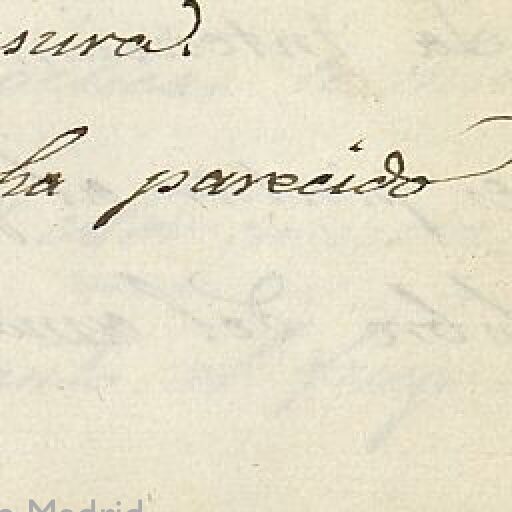 sura?
ha parecido
Madrid